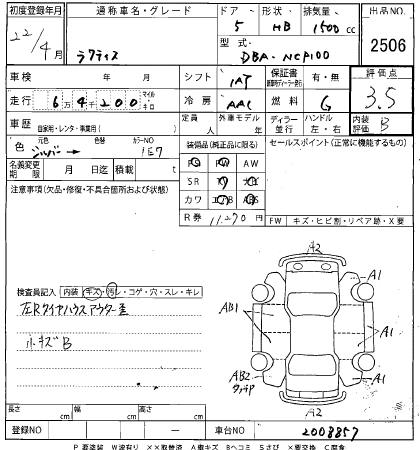 初度登録年月 通称車名・グレード ドア・形状 排気量 出品NO.
22/4月 ラクティス 5 HB 1500cc 2506
型式 DBA-NCP100
車検 年 月 シフト IAT 保証書 有・無 評価点
走行 6万4千200 マイル キロ 冷房 AAC 燃料 G 3.5
車歴 自家用・レンタ・事業用( ) 定員 人 外車モデル 年 ディーラー 並行 ハンドル 左・右 内装評価 B
色 元色 シルバー → 色替 カラーNO 1E7 装備品(純正品に限る) セールスポイント(正常に機能するもの)
PS PW AW
名義変更期限 月 日迄 積載 t SR
注意事項(欠品・修復・不具合箇所および状態) カワ
R券 11,270円 FW キズ・ヒビ割・リペア跡・X要
A2
A1 A1
検査員記入 内装 キズ・汚レ・コゲ・穴・スレ・キレ
AB1
左Rタイヤハウスアウター歪
小キズB
AB2 A1
A2
長さ cm 幅 cm 高さ cm
登録NO 車台NO 2008857
P 要塗装 W波有り XX取替済 A線キズ Bヘコミ Sさび X要交換 C腐食